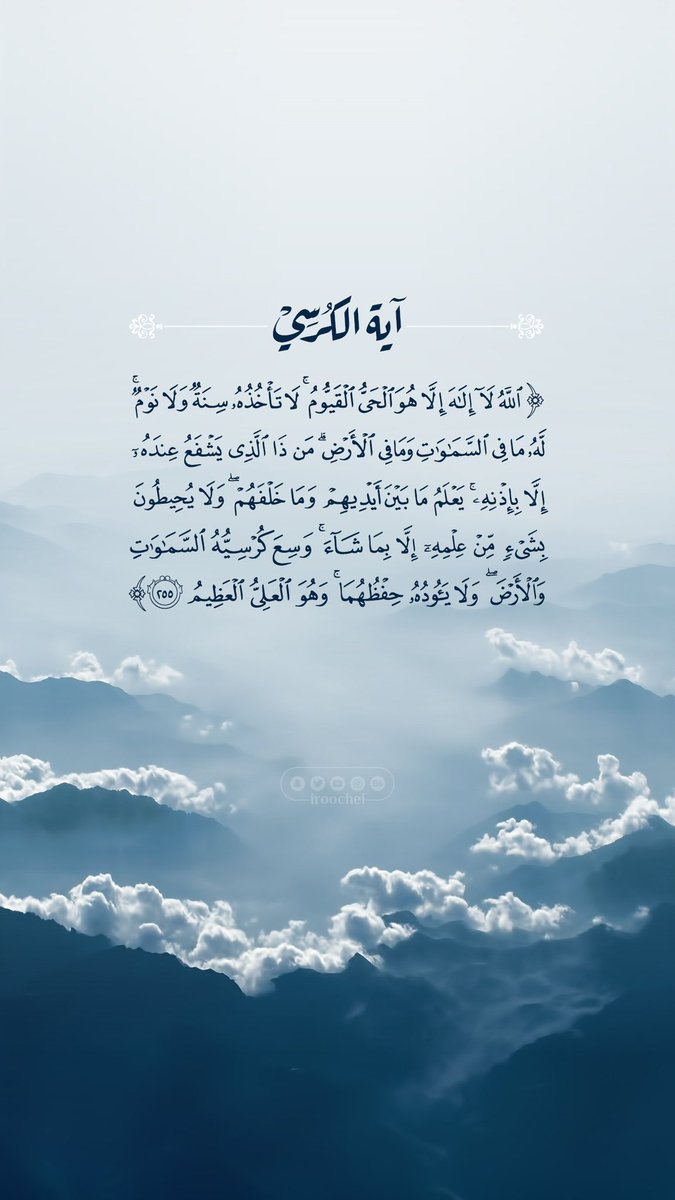 آية الكُرسِيْ
﴿ ٱللَّهُ لَآ إِلَـٰهَ إِلَّا هُوَ ٱلْحَىُّ ٱلْقَيُّومُ ۚ لَا تَأْخُذُهُۥ سِنَةٌ وَلَا نَوْمٌ ۚ
لَّهُۥ مَا فِى ٱلسَّمَـٰوَٰتِ وَمَا فِى ٱلْأَرْضِ ۗ مَن ذَا ٱلَّذِى يَشْفَعُ عِندَهُۥٓ
إِلَّا بِإِذْنِهِۦ ۚ يَعْلَمُ مَا بَيْنَ أَيْدِيهِمْ وَمَا خَلْفَهُمْ ۖ وَلَا يُحِيطُونَ
بِشَىْءٍ مِّنْ عِلْمِهِۦٓ إِلَّا بِمَا شَآءَ ۚ وَسِعَ كُرْسِيُّهُ ٱلسَّمَـٰوَٰتِ
وَٱلْأَرْضَ ۖ وَلَا يَـُٔودُهُۥ حِفْظُهُمَا ۚ وَهُوَ ٱلْعَلِىُّ ٱلْعَظِيمُ ٢٥٥ ﴾
iroochei